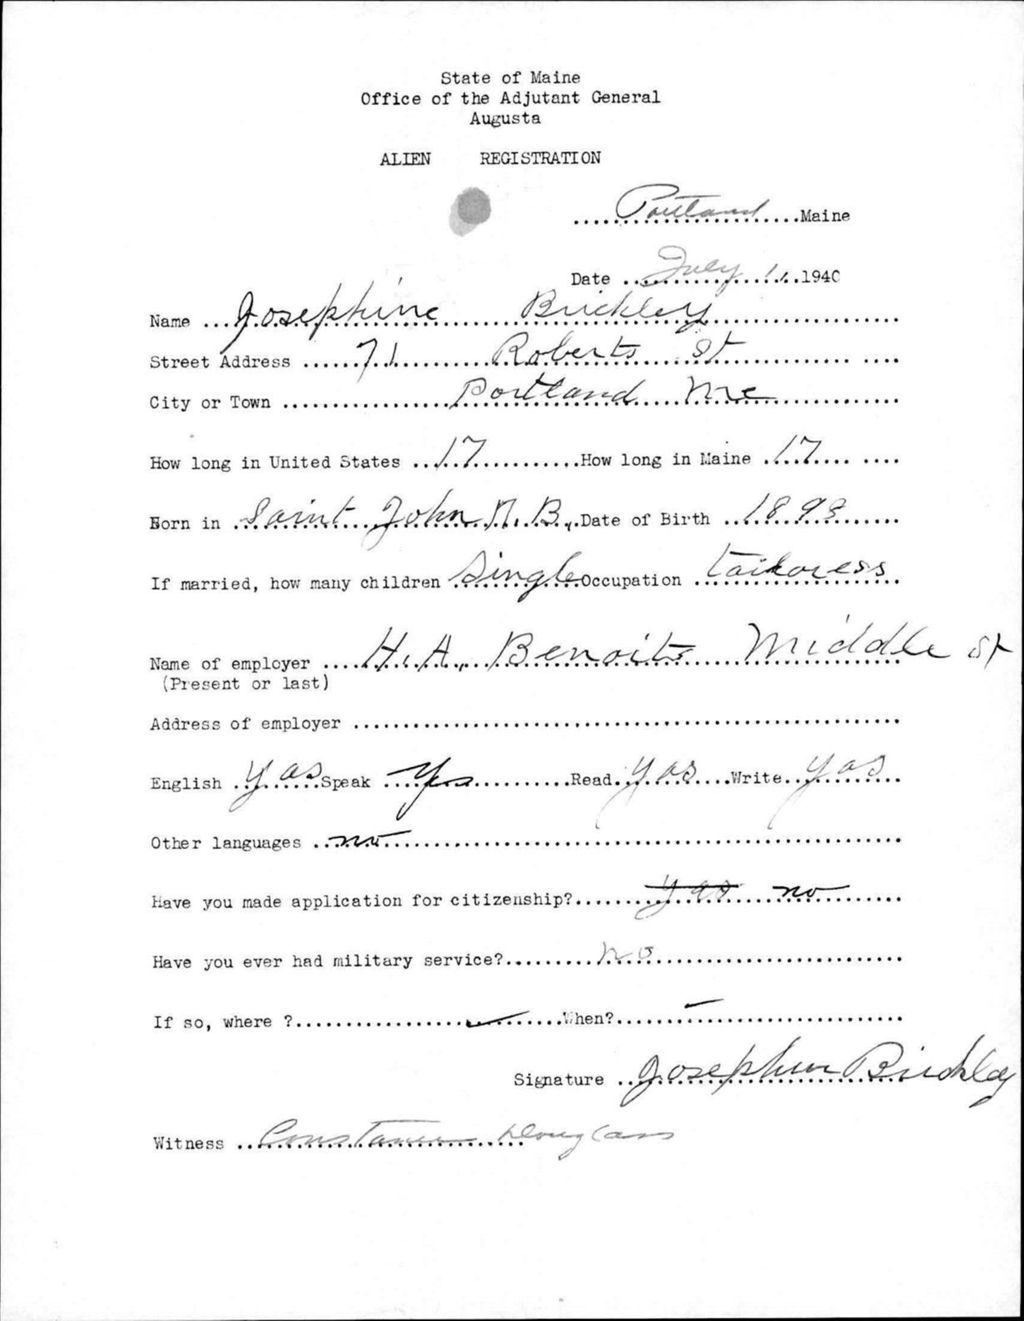 State of Maine
Office of the Adjutant General
Augusta
ALIEN REGISTRATION
Portland Maine
Date July 1, 1940
Name Josephine Brickley
Street Address 71 Roberts St
City or Town Portland Me
How long in United States 17 How long in Maine 17
Born in Saint John N.B. Date of Birth 1893
If married, how many children Single Occupation tailoress
Name of employer H.A. Benoits Middle St
(Present or last)
Address of employer
English Yas Speak Yes Read Yas Write Yas
Other languages no
Have you made application for citizenship? yas no
Have you ever had military service? no
If so, where ? When?
Signature Josephine Brickley
Witness Constance Douglass